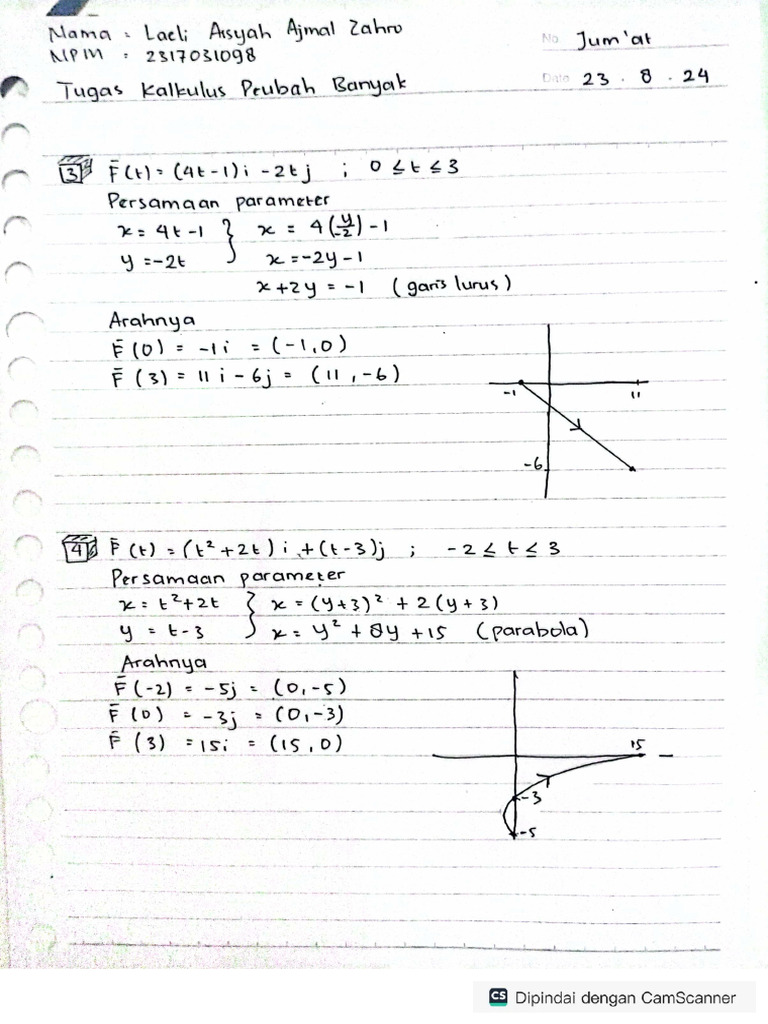 Nama : Laeli Aisyah Ajmal Zahro
NPM : 2317031098
No Jum'at
Date 23 . 8 . 24
Tugas Kalkulus Peubah Banyak
3 F̄(t) = (4t-1)i -2tj ; 0 ≤ t ≤ 3
Persamaan parameter
x = 4t-1 } x = 4(y/-2) -1
y = -2t x = -2y-1
x+2y = -1 (garis lurus)
Arahnya
F̄(0) = -1i = (-1,0)
F̄(3) = 11i - 6j = (11,-6)
-1 11
-6
4 F̄(t) = (t²+2t)i + (t-3)j ; -2 ≤ t ≤ 3
Persamaan parameter
x = t²+2t } x = (y+3)² + 2(y+3)
y = t-3 x = y² + 8y +15 (parabola)
Arahnya
F̄(-2) = -5j = (0,-5)
F̄(0) = -3j = (0,-3)
F̄(3) = 15i = (15,0)
15
-3
-5
CS Dipindai dengan CamScanner